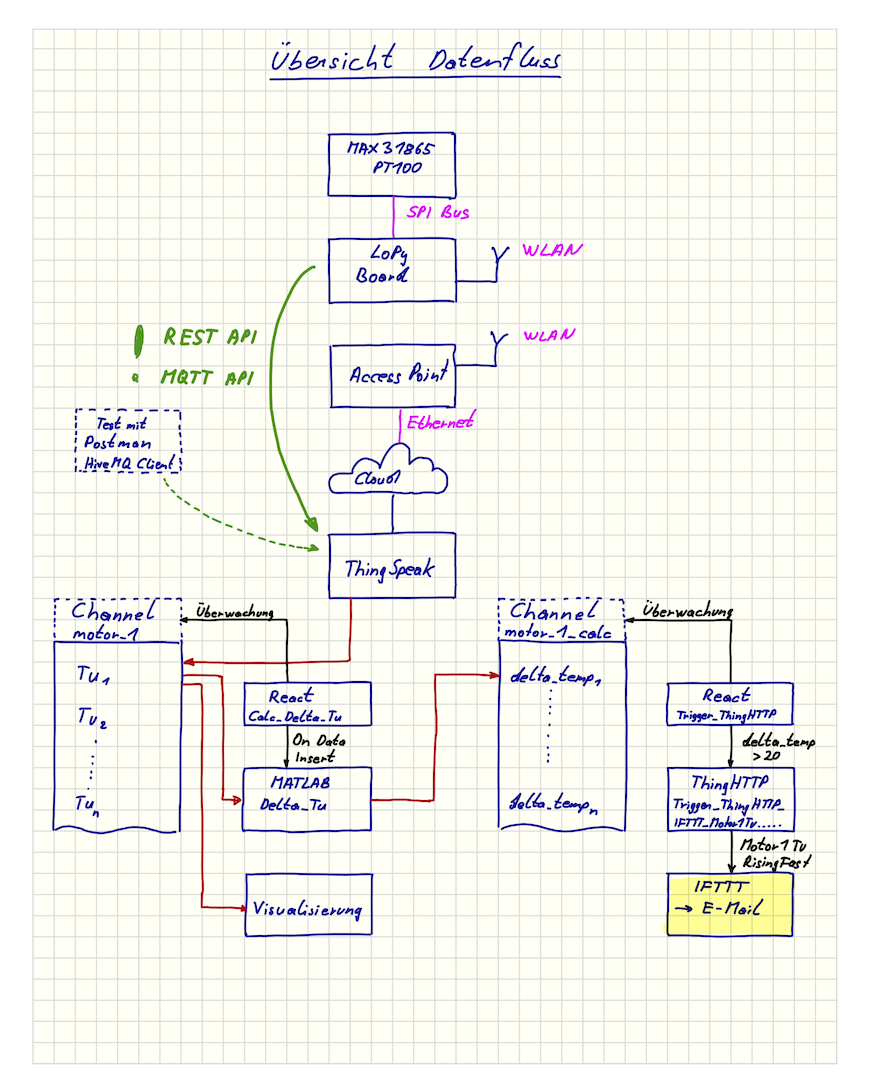 Übersicht Datenfluss
MAX31865
PT100
SPI Bus
LoPy
Board
WLAN
REST API
MQTT API
WLAN
Access Point
Ethernet
Test mit
Postman
HiveMQ Client
Cloud
ThingSpeak
Channel
motor_1
Überwachung
Tu1
Tu2
Tun
React
Calc_Delta_Tu
On Data
Insert
MATLAB
Delta_Tu
Visualisierung
Channel
motor_1_calc
Überwachung
delta_temp1
delta_tempn
React
Trigger_ThingHTTP
delta_temp
>20
ThingHTTP
Trigger_ThingHTTP_
IFTTT_Motor1Tu.....
Motor1Tu
RisingFast
IFTTT
→ E-Mail